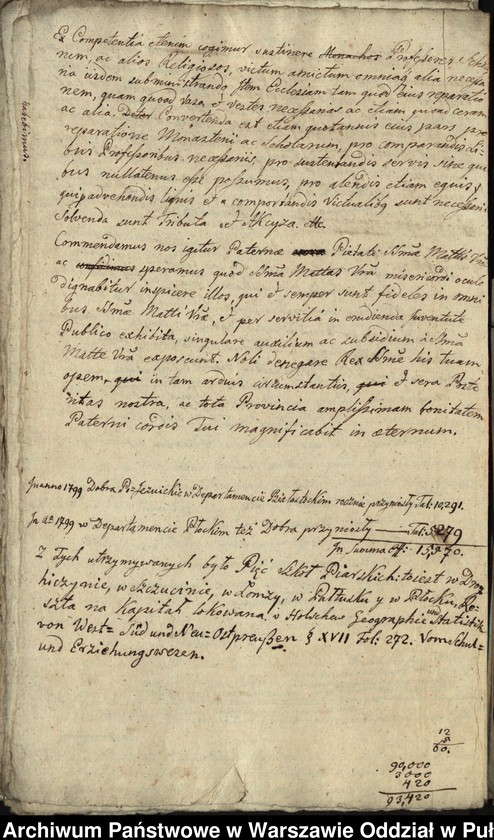 Ex Competentia etenim cogimur sustinere Monachos Professores Schola
nem, ac alios Religiosos, victum amictum omniaq alia necessa
ria iisdem subministrando. Item Ecclesiam tam quod Eius reparatio
nem, quam quoad Vasa, et vestes necessarias ac etiam quoad ceram
ac alia. Convertenda est etiam quotannis eius pars, pro
reparatione Monasterii ac Scholarum, pro comparandis Li-
bris Professoribus necessariis, pro sustentandis servis sine qui
bus nullatenus esse possumus, pro alendis etiam equis,
qui advehendis lignis et comportandis Victualibq sunt necessarii.
Solvenda sunt Tributa et Akcyza. etc.
exhibimus.
Commendamus nos igitur Paternæ Pietati Smæ Mattis Vræ
ac confidimus speramus quod Sma Mattas Vra misericordi oculo
dignabitur inspicere illos, qui et semper sunt fideles in omni
bus Smæ Matti Vræ, et per servitia in erudienda Juventute
Publico exhibita, singulare auxilium ac subsidium à Sma
Matte Vra exposcunt. Noli denegare Rex Sme his tuam
opem, qui in tam arduis circumstantiis, qui et sera Poste
ritas nostra, ac tota Provincia amplissimam bonitatem
Paterni cordis Tui magnificabit in æternum.
In anno 1799 Dobra Po-Jezuickie w Departamencie Białostockim rocznie przyniosły Tal: 10291.
In Ao 1799 w Departamencie Płockim też Dobra przyniosły Tal: 5279
In Summa 15,570.
Z tych utrzymywanych było Pięć Szkół Piarskich: to iest w Dro
hiczynie, w Szczucinie, w Łomży, w Pułtusku y w Płocku, Re-
szta na Kapitał lokowana. v Holsche Geographie und Statistik
von West= Süd und Neu=Ostpreußen § XVII Fol: 272. Vom Schul=
und Erziehungswesen.
12
5
60.
90,000
3000
420
93,420
Archiwum Państwowe w Warszawie Oddział w Puł